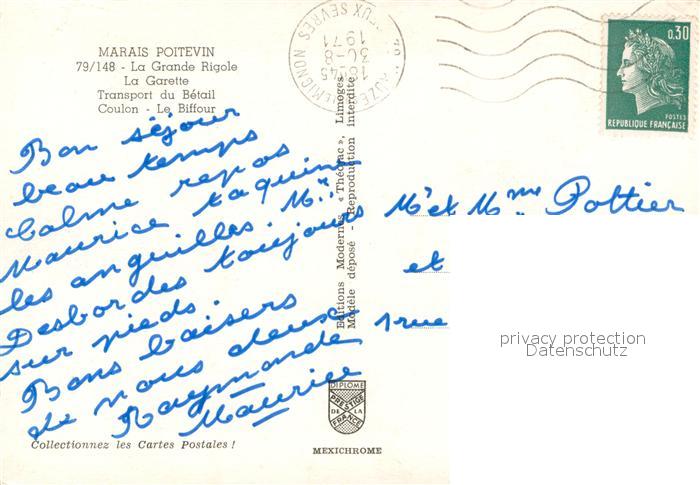 MARAIS POITEVIN
79/148 - La Grande Rigole
La Garette
Transport du Bétail
Coulon - Le Biffour
Bon séjour
beau temps
Calme repos
Maurice taquine
les anguilles. Mr
Desbordes toujours
sur pieds.
Bons baisers
de nous deux
Raymonde
Maurice
Collectionnez les Cartes Postales !
Editions Modernes « Théojac », Limoges
Modèle déposé - Reproduction interdite
DIPLOME
PRESTIGE
DE LA
FRANCE
MEXICHROME
DEUX SEVRES
18H45
30-8
1971
0,30
POSTES
REPUBLIQUE FRANÇAISE
Mr et Mme Pottier
et
1 rue
privacy protection
Datenschutz